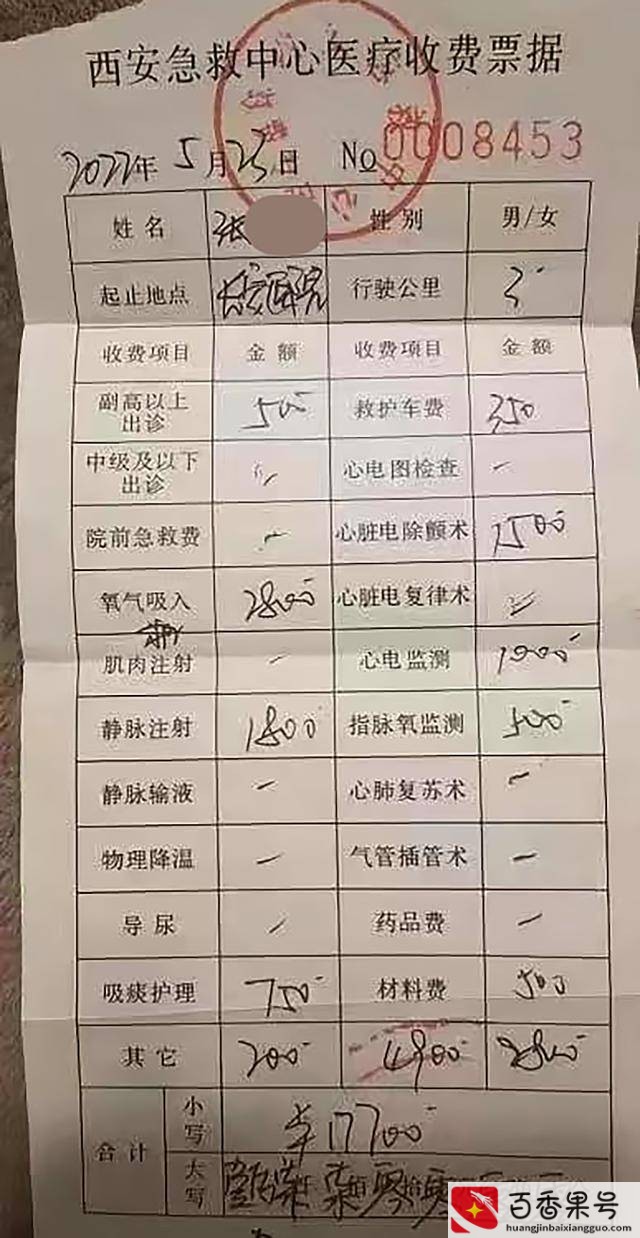 西安急救中心医疗收费票据
2022年 5月25日 № 0008453
姓名 张 性别 男/女
起止地点 长安医院 行驶公里
收费项目 金额 收费项目 金额
副高以上出诊 500 救护车费 350
中级及以下出诊 — 心电图检查 —
院前急救费 — 心脏电除颤术 1500
氧气吸入 2800 心脏电复律术 —
肌肉注射 — 心电监测 1000
静脉注射 1800 指脉氧监测 500
静脉输液 — 心肺复苏术 —
物理降温 — 气管插管术 —
导尿 — 药品费 —
吸痰护理 750 材料费 500
其它 200 4900
合计 小写 ¥17700
大写
百香果号
huangjinbaixiangguo.com